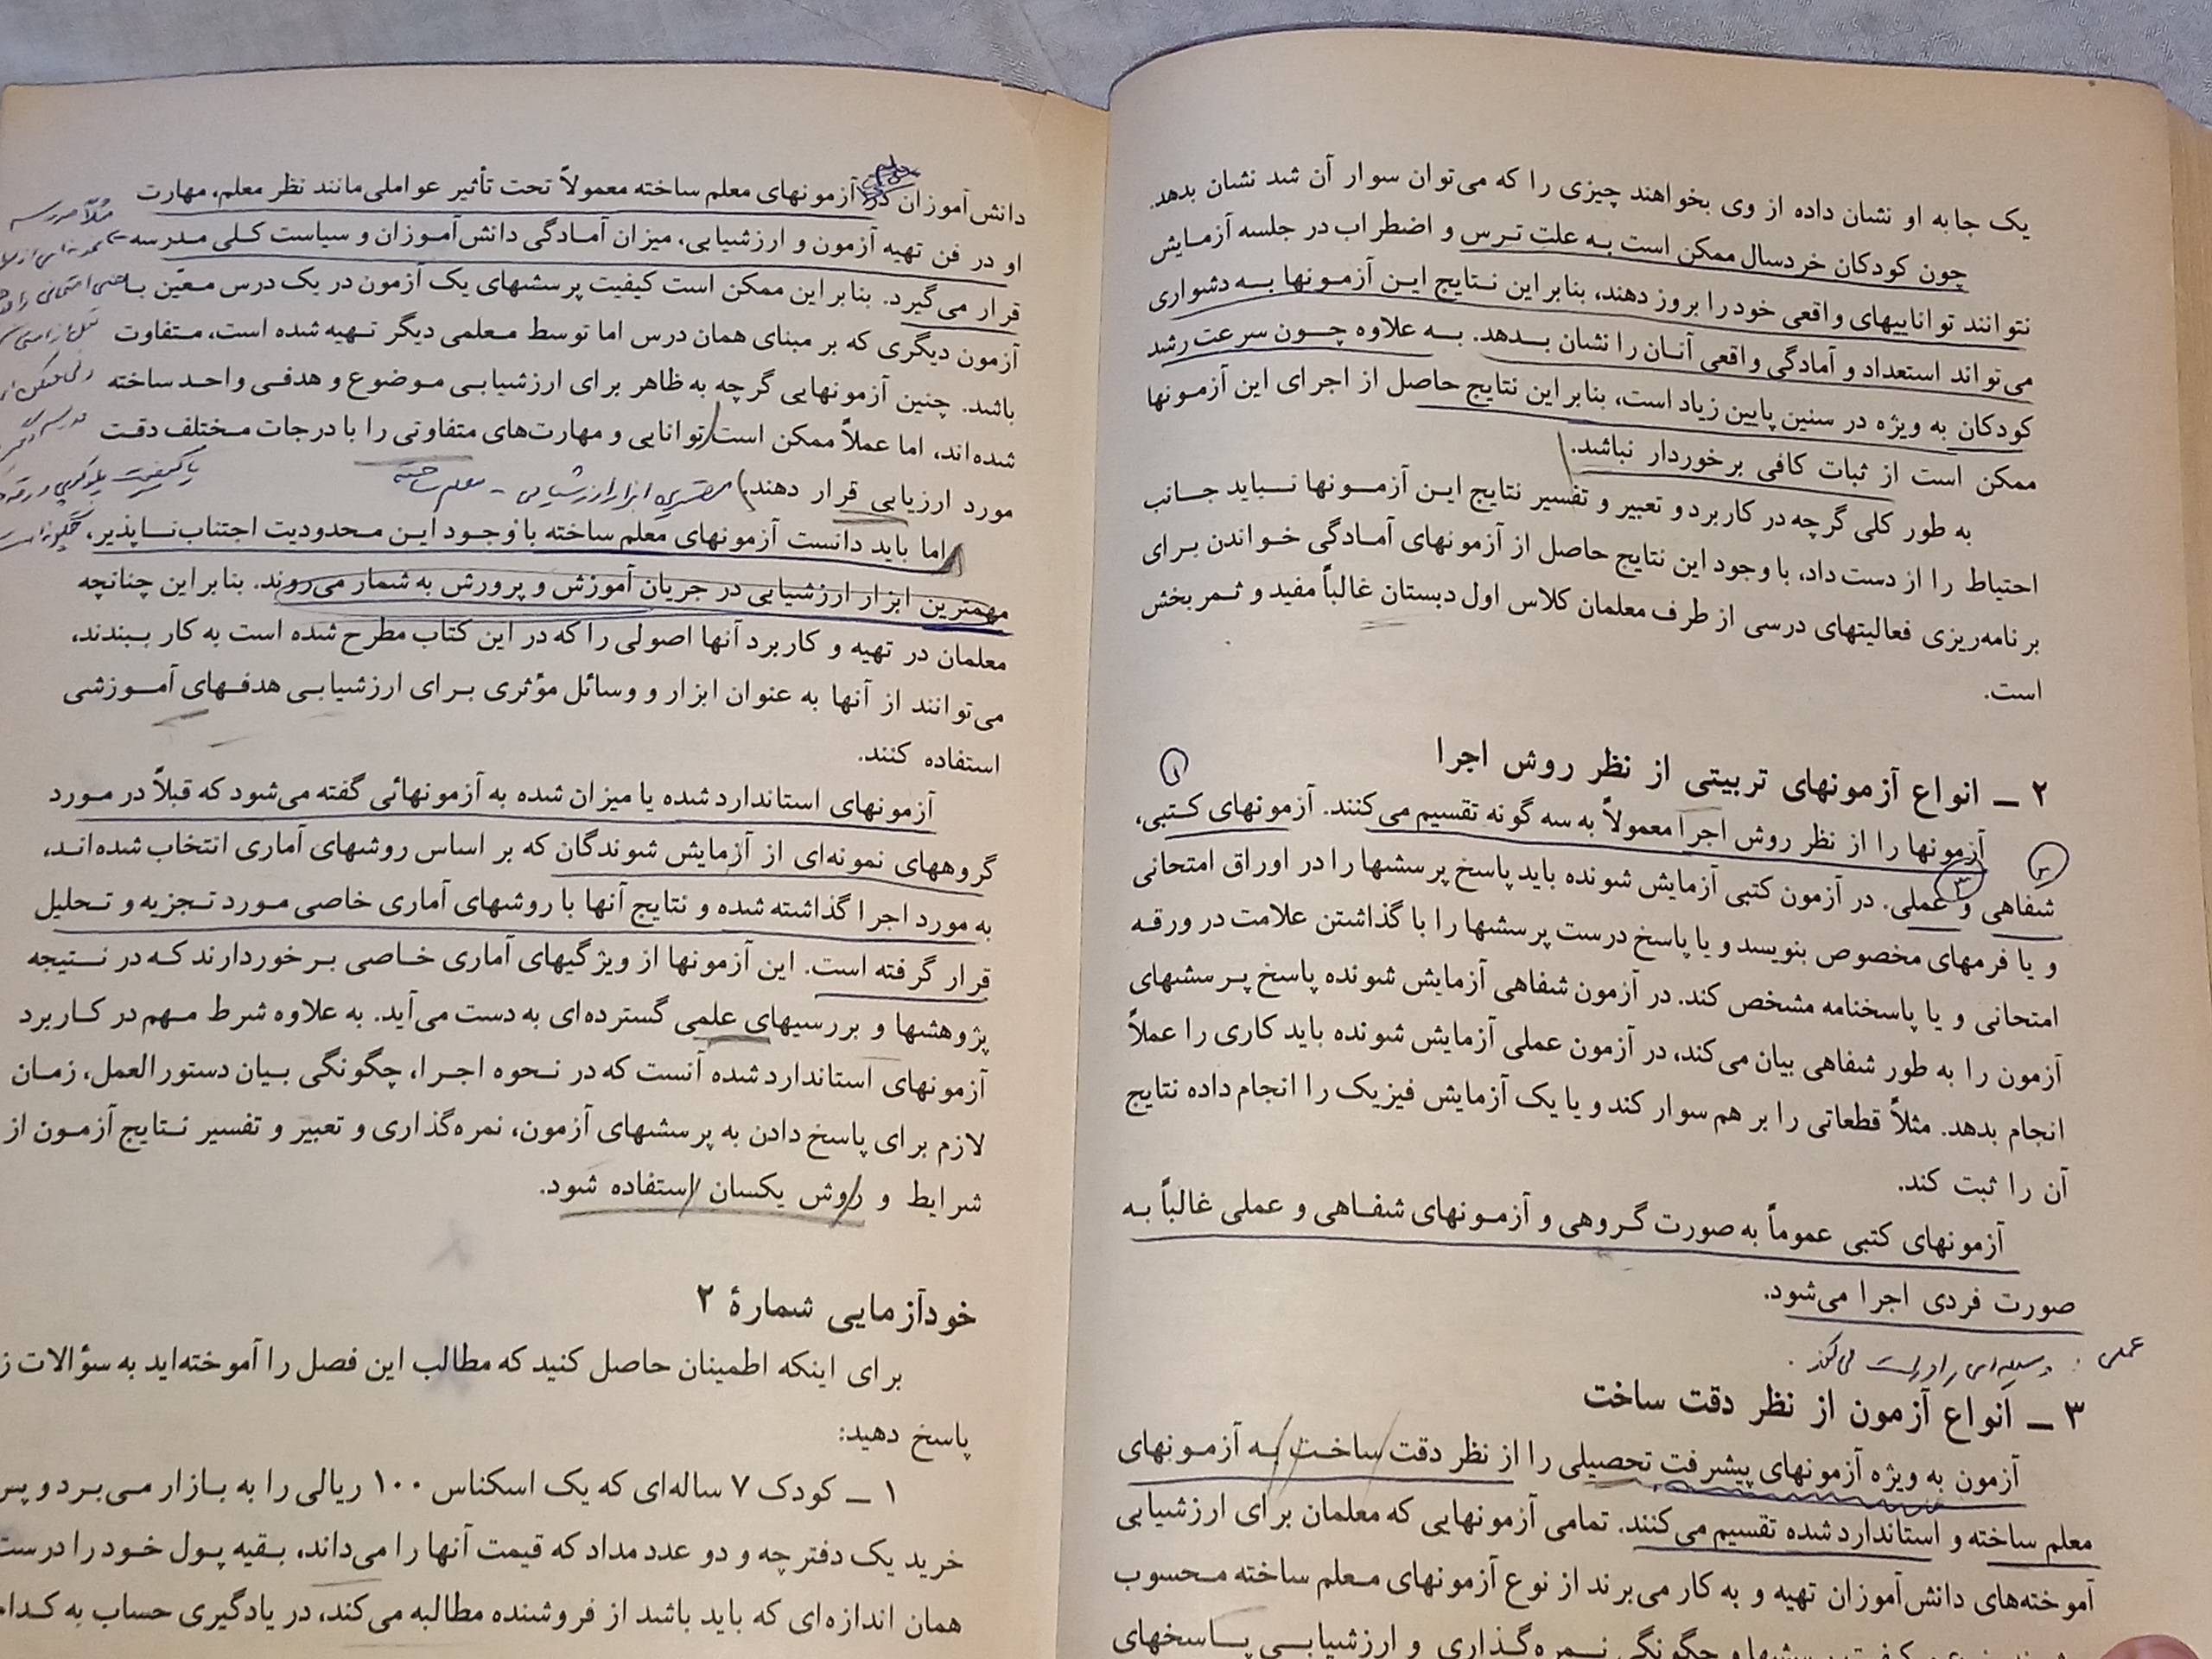 یک جا به او نشان داده از وی بخواهند چیزی را که می‌توان سوار آن شد نشان بدهد.
چون کودکان خردسال ممکن است به علت ترس و اضطراب در جلسه آزمایش
نتوانند تواناییهای واقعی خود را بروز دهند، بنابراین نتایج این آزمونها به دشواری
می‌تواند استعداد و آمادگی واقعی آنان را نشان بدهد. به علاوه چون سرعت رشد
کودکان به ویژه در سنین پایین زیاد است، بنابراین نتایج حاصل از اجرای این آزمونها
ممکن است از ثبات کافی برخوردار نباشد.
به طور کلی گرچه در کاربرد و تعبیر و تفسیر نتایج این آزمونها نباید جانب
احتیاط را از دست داد، با وجود این نتایج حاصل از آزمونهای آمادگی خواندن برای
برنامه‌ریزی فعالیتهای درسی از طرف معلمان کلاس اول دبستان غالباً مفید و ثمربخش
است.
۲ ــ انواع آزمونهای تربیتی از نظر روش اجرا
۱
آزمونها را از نظر روش اجرا معمولاً به سه گونه تقسیم می‌کنند. آزمونهای کتبی،
۲ ۳
شفاهی و عملی. در آزمون کتبی آزمایش شونده باید پاسخ پرسشها را در اوراق امتحانی
و یا فرمهای مخصوص بنویسد و یا پاسخ درست پرسشها را با گذاشتن علامت در ورقه
امتحانی و یا پاسخنامه مشخص کند. در آزمون شفاهی آزمایش شونده پاسخ پرسشهای
آزمون را به طور شفاهی بیان می‌کند، در آزمون عملی آزمایش شونده باید کاری را عملاً
انجام بدهد. مثلاً قطعاتی را بر هم سوار کند و یا یک آزمایش فیزیک را انجام داده نتایج
آن را ثبت کند.
آزمونهای کتبی عموماً به صورت گروهی و آزمونهای شفاهی و عملی غالباً به
صورت فردی اجرا می‌شود.
عملی : وسیله‌ای را درست می‌کند.
۳ ــ انواع آزمون از نظر دقت ساخت
آزمون به ویژه آزمونهای پیشرفت تحصیلی را از نظر دقت ساخت به آزمونهای
معلم ساخته و استاندارد شده تقسیم می‌کنند. تمامی آزمونهایی که معلمان برای ارزشیابی
آموخته‌های دانش‌آموزان تهیه و به کار می‌برند از نوع آزمونهای معلم ساخته محسوب
کیفیت پرسشها و چگونگی نمره‌گذاری و ارزشیابی پاسخهای
دانش‌آموزان در آزمونهای معلم ساخته معمولاً تحت تأثیر عواملی مانند نظر معلم، مهارت
او در فن تهیه آزمون و ارزشیابی، میزان آمادگی دانش‌آموزان و سیاست کلی مدرسه
قرار می‌گیرد. بنابراین ممکن است کیفیت پرسشهای یک آزمون در یک درس معیّن با
آزمون دیگری که بر مبنای همان درس اما توسط معلمی دیگر تهیه شده است، متفاوت
باشد. چنین آزمونهایی گرچه به ظاهر برای ارزشیابی موضوع و هدفی واحد ساخته
شده‌اند، اما عملاً ممکن است توانایی و مهارت‌های متفاوتی را با درجات مختلف دقت
مورد ارزیابی قرار دهند. مهمترین ابزار ارزشیابی - معلم ساخته
اما باید دانست آزمونهای معلم ساخته با وجود این محدودیت اجتناب‌ناپذیر،
مهمترین ابزار ارزشیابی در جریان آموزش و پرورش به شمار می‌روند. بنابراین چنانچه
معلمان در تهیه و کاربرد آنها اصولی را که در این کتاب مطرح شده است به کار ببندند،
می‌توانند از آنها به عنوان ابزار و وسائل مؤثری برای ارزشیابی هدفهای آموزشی
استفاده کنند.
آزمونهای استاندارد شده یا میزان شده به آزمونهائی گفته می‌شود که قبلاً در مورد
گروههای نمونه‌ای از آزمایش شوندگان که بر اساس روشهای آماری انتخاب شده‌اند،
به مورد اجرا گذاشته شده و نتایج آنها با روشهای آماری خاصی مورد تجزیه و تحلیل
قرار گرفته است. این آزمونها از ویژگیهای آماری خاصی برخوردارند که در نتیجه
پژوهشها و بررسیهای علمی گسترده‌ای به دست می‌آید. به علاوه شرط مهم در کاربرد
آزمونهای استاندارد شده آنست که در نحوه اجرا، چگونگی بیان دستورالعمل، زمان
لازم برای پاسخ دادن به پرسشهای آزمون، نمره‌گذاری و تعبیر و تفسیر نتایج آزمون از
شرایط و روش یکسان استفاده شود.
خودآزمایی شمارهٔ ۲
برای اینکه اطمینان حاصل کنید که مطالب این فصل را آموخته‌اید به سؤالات
پاسخ دهید:
۱ ــ کودک ۷ ساله‌ای که یک اسکناس ۱۰۰ ریالی را به بازار می‌برد و پس
خرید یک دفترچه و دو عدد مداد که قیمت آنها را می‌داند، بقیه پول خود را درست
همان اندازه‌ای که باید باشد از فروشنده مطالبه می‌کند، در یادگیری حساب به